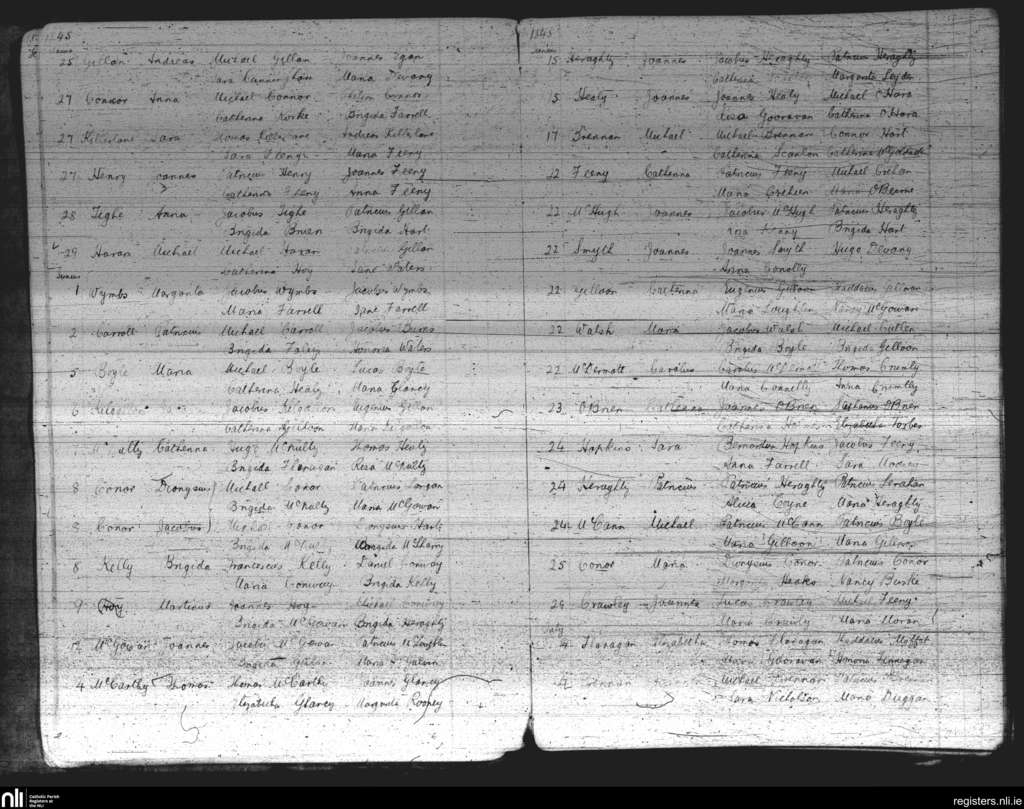 1845
25 Gillan Andreas Michael Gillan Joannes Egan
Sara Cunningham Maria Devany
27 Connor Anna Michael Connor Connor
Catherina Rorke Brigida Farrell
27 Killerlane Sara Thomas Killerlane Andreas Killerlane
Sara Feeny Maria Feeny
27 Henry Joannes Patricius Henry Joannes Feeny
Catherina Feeny Anna Feeny
28 Tighe Anna Jacobus Tighe Patricius Gillan
Brigida Brien Brigida Hart
29 Haran Michael Michael Haran Gillan
Catherina Hoy Jane Waters
Junius
1 Wymbs Margarita Jacobus Wymbs Jacobus Wymbs
Maria Farrell Jane Farrell
2 Carroll Patricius Michael Carroll Jacobus Burns
Brigida Foley Honoria Waters
5 Boyle Maria Michael Boyle Lucas Boyle
Catherina Healy Maria Clancy
6 Jacobus Kilgallon Eugenius Gillan
Catherina Maria
McNulty Catherina Hugo McNulty Thomas Healy
Brigida Flanagan Rosa McNulty
8 Conor Dionysius Michael Conor Patricius
Brigida McNulty Maria McGowan
8 Conor Jacobus Michael Conor Dionysius Hart
Brigida McNulty Brigida McSharry
8 Kelly Brigida Franciscus Kelly Daniel Conway
Maria Conway Brigida Kelly
9 Hoy Martinus Joannes Hoy Michael Conway
Brigida McGowan Brigida Heraghty
12 McGowan Joannes Jacobus McGowan Patricius McLoughlin
Brigida Maria Galvin
4 McCarthy Thomas Thomas McCarthy Joannes Glancy
Elizabetha Glancy Margarita Rooney
1845
Junius
15 Heraghty Joannes Jacobus Heraghty Patricius Heraghty
Catherina Margarita Leyden
15 Healy Joannes Joannes Healy Michael O'Hara
Anna Gooravan Catherina O'Hara
17 Brennan Michael Michael Brennan Connor Hart
Catherina Scanlon Catherina
22 Feeny Catherina Patricius Feeny Michael Crehan
Maria Greheen Maria O'Beirne
22 McHugh Joannes Jacobus McHugh Patricius Heraghty
Brigida Hart
22 Smyth Joannes Joannes Smyth Hugo Devany
Anna Conolly
22 Gilloon Catherina Eugenius Gilloon Thaddaeus
Maria Loughlin Nancy McGowan
22 Walsh Maria Jacobus Walsh Michael Cullen
Brigida Boyle Brigida Gilloon
22 McDermott Carolus Carolus McDermott Thomas Crumly
Maria Connolly Anna Crumlly
23 OBrien Catherina Joannes OBrien OBrien
Catherina Elizabetha Forbes
24 Hopkins Sara Bernardus Hopkins Jacobus Feeny
Anna Farrell Sara
24 Heraghty Patricius Patricius Heraghty Patricius
Alicia Coyne Maria Heraghty
24 McCann Michael Patricius McCann Patricius Boyle
Maria Gilloon Maria
25 Conor Maria Dionysius Conor Patricius Conor
Nancy Burke
29 Crawley Joannes Lucas Crawley Michael Feeny
Maria Maria Moran
July
4 Flanagan Elizabetha Thomas Flanagan Thaddaeus Moffat
Gooravan Honoria Finnegan
4 Brennan Michael Brennan Patricius
Sara Nicholson Maria Duggan
nli Catholic Parish
Registers at
the NLI
registers.nli.ie